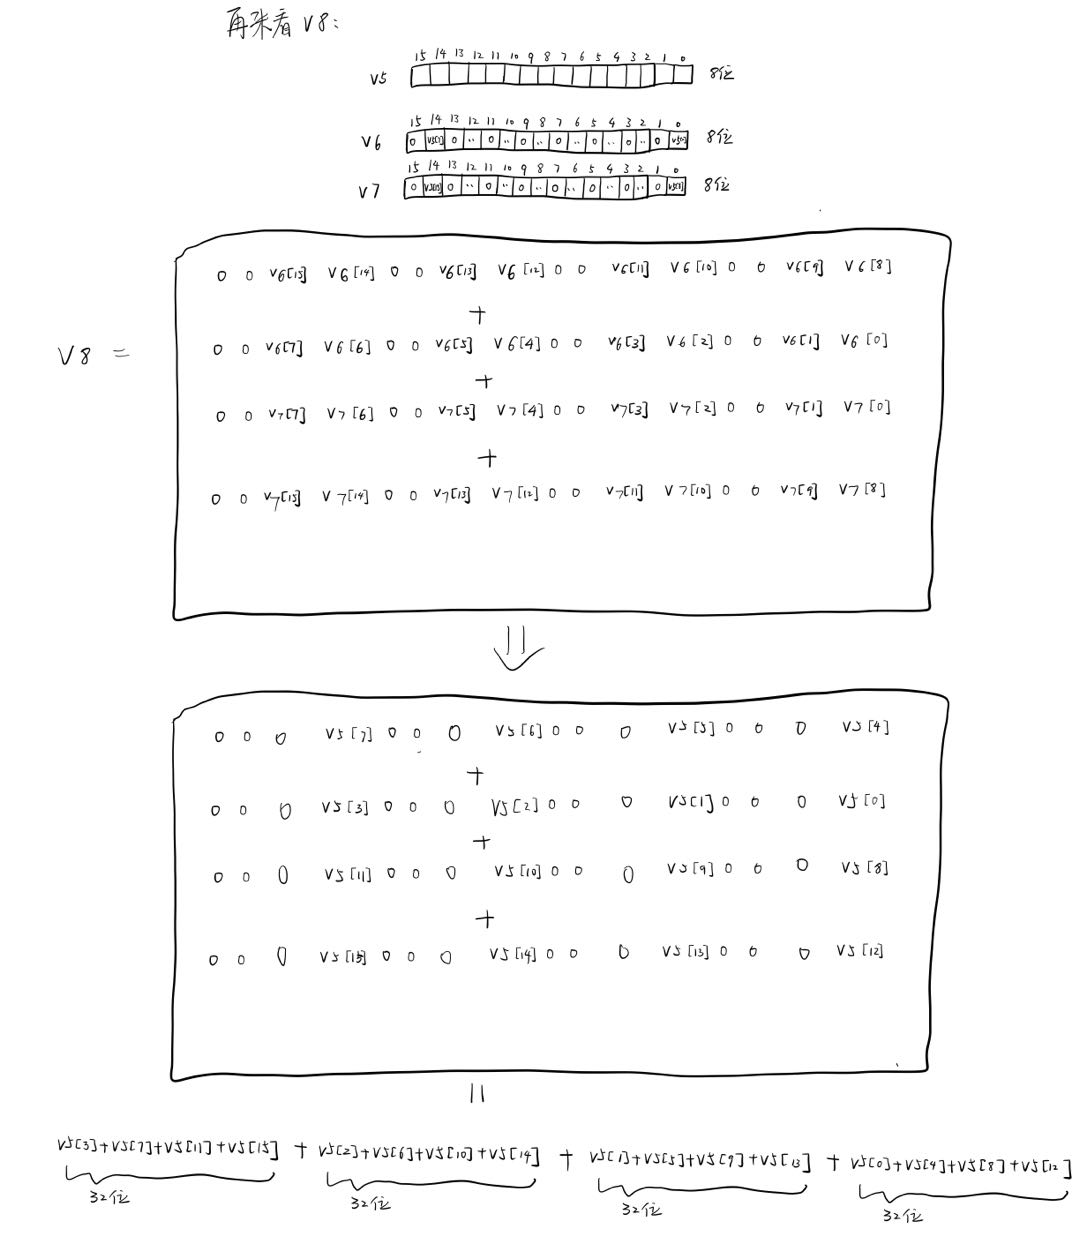 再来看 V8:
15 14 13 12 11 10 9 8 7 6 5 4 3 2 1 0
V5 8位
15 14 13 12 11 10 9 8 7 6 5 4 3 2 1 0
V6 0 V5[7] 0 .. 0 .. 0 .. 0 .. 0 .. 0 .. 0 V5[0] 8位
15 14 13 12 11 10 9 8 7 6 5 4 3 2 1 0
V7 0 0 .. 0 .. 0 .. 0 .. 0 .. 0 .. 0 8位
0 0 V6[15] V6[14] 0 0 V6[13] V6[12] 0 0 V6[11] V6[10] 0 0 V6[9] V6[8]
+
V8 = 0 0 V6[7] V6[6] 0 0 V6[5] V6[4] 0 0 V6[3] V6[2] 0 0 V6[1] V6[0]
+
0 0 V7[7] V7[6] 0 0 V7[5] V7[4] 0 0 V7[3] V7[2] 0 0 V7[1] V7[0]
+
0 0 V7[15] V7[14] 0 0 V7[13] V7[12] 0 0 V7[11] V7[10] 0 0 V7[9] V7[8]
0 0 0 V5[7] 0 0 0 V5[6] 0 0 0 V5[5] 0 0 0 V5[4]
+
0 0 0 V5[3] 0 0 0 V5[2] 0 0 0 V5[1] 0 0 0 V5[0]
+
0 0 0 V5[11] 0 0 0 V5[10] 0 0 0 V5[9] 0 0 0 V5[8]
+
0 0 0 V5[15] 0 0 0 V5[14] 0 0 0 V5[13] 0 0 0 V5[12]
=
V5[3]+V5[7]+V5[11]+V5[15] + V5[2]+V5[6]+V5[10]+V5[14] + V5[1]+V5[5]+V5[9]+V5[13] + V5[0]+V5[4]+V5[8]+V5[12]
32位 32位 32位 32位